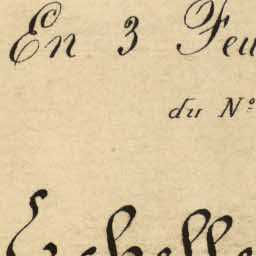 En 3 Feu
du Nº
Echelle